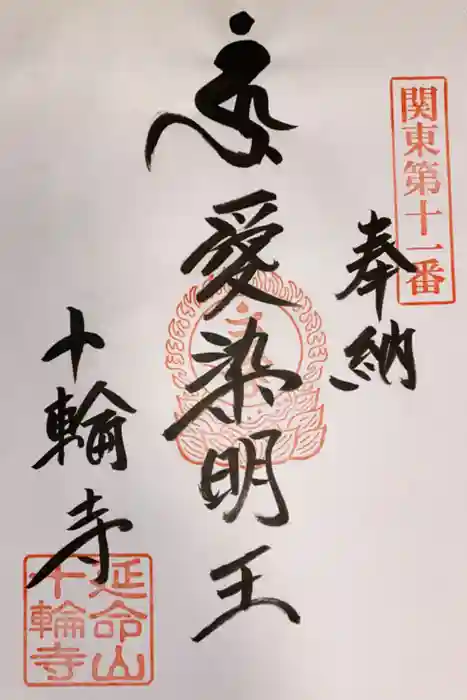 関東第十一番
奉納
愛染明王
十輪寺
延命山
十輪寺